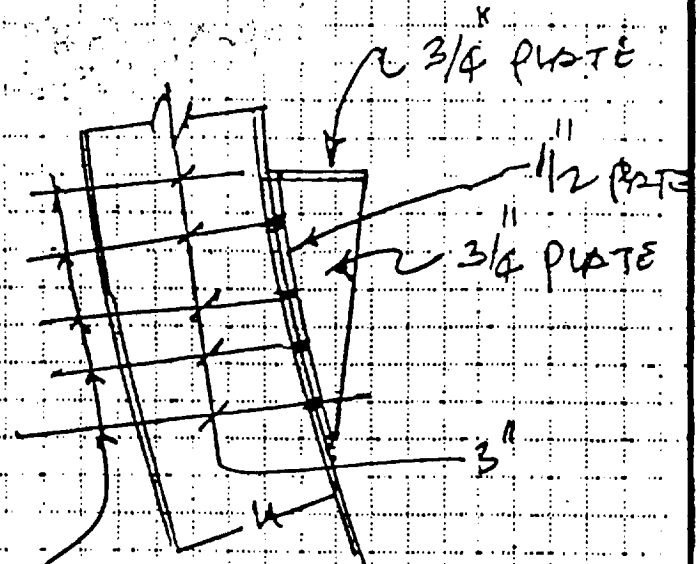 3/4" PLATE
1 1/2" PLATE
3/4" PLATE
3"